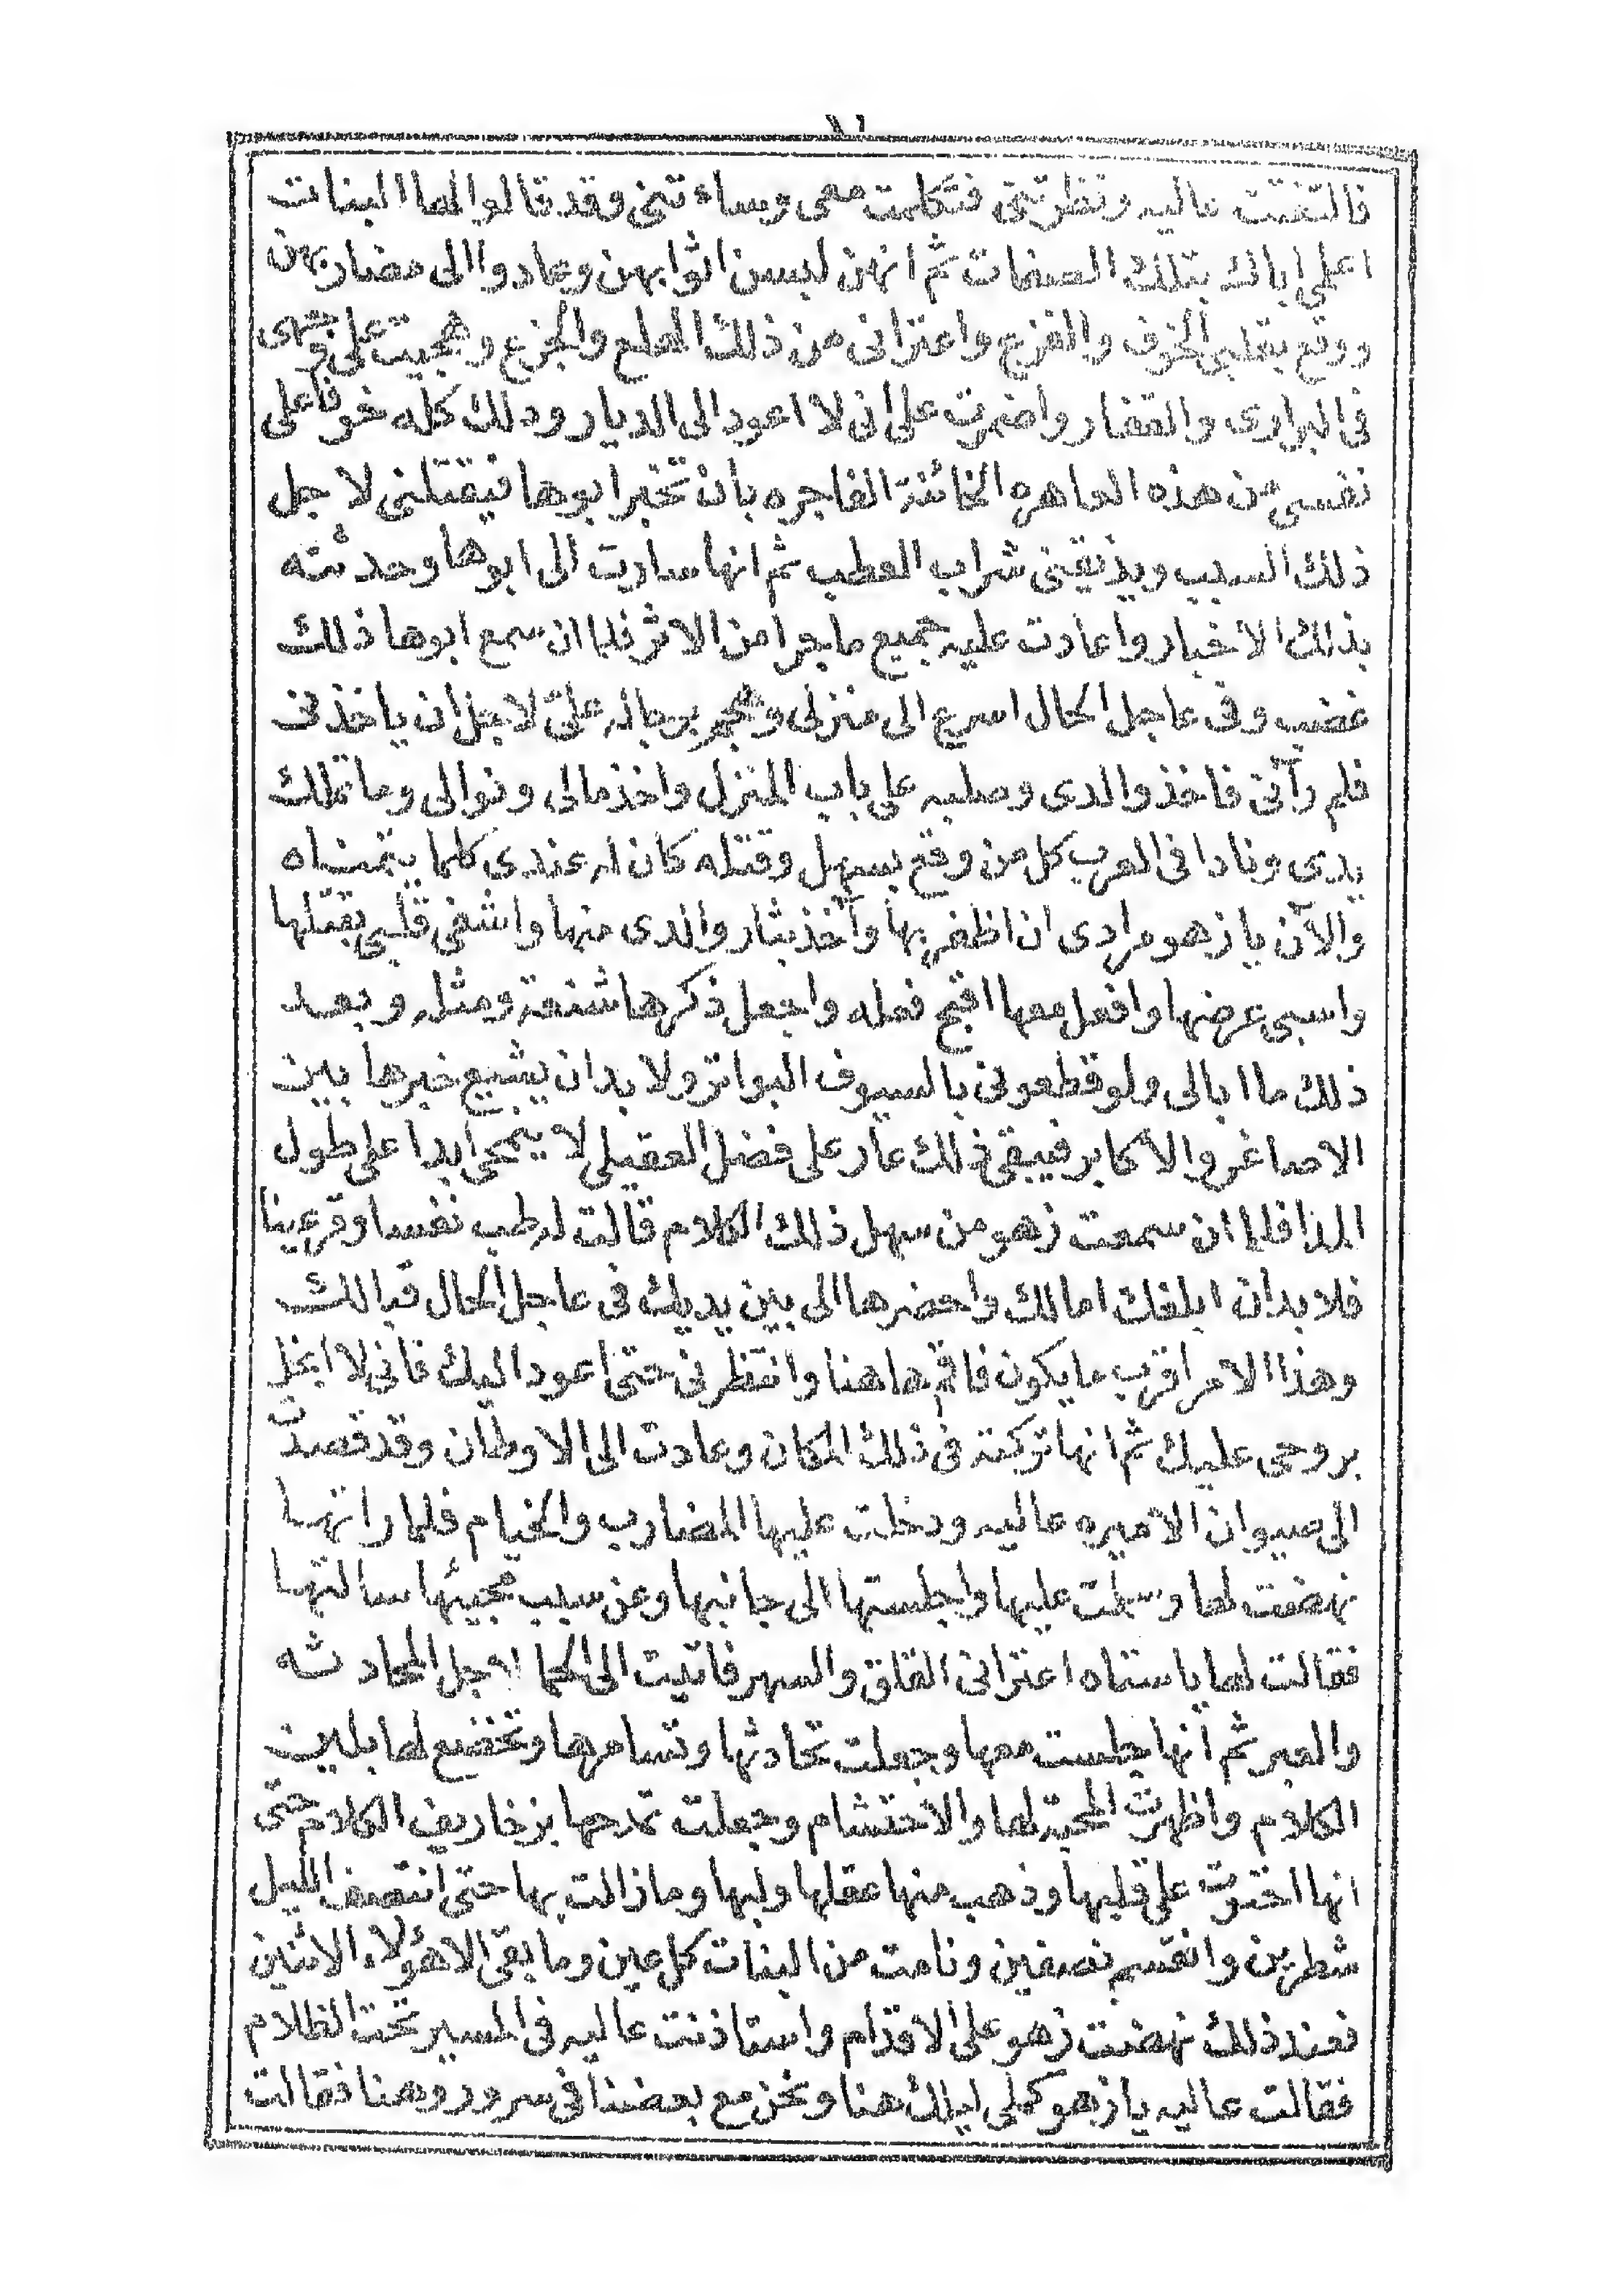 فالتفتت عاليه ونظرتنى فتكلمت معى وساءتنى وقد قالوا لها البنات
اعلمى اباك بتلك الصفات ثم انهن لبسن اثوابهن وعادوا الى مضاربهن
ووقع بقلبى الخوف والفزع واعترانى من ذلك الهلع والجزع وهجيت على وجهى
فى البرارى والقفار واضمرت على انى لا اعود الى الديار وذلك كله خوفا على
نفسى من هذه العاهره الخائنة الفاجره بان تخبر ابوها فيقتلنى لاجل
ذلك السبب ويذيقنى شراب العطب ثم انها سارت الى ابوها وحدثته
بذلك الاخبار واعادت عليه جميع ما جرا من الاثر فلما ان سمع ابوها ذلك
غضب وفى عاجل الحال اسرع الى منزلى وهجم برجاله على لاجل ان ياخذنى
فلم رآنى فاخذ والدى وصلبه على باب المنزل واخذ مالى ونوالى وما تملك
يدى ونادا فى العرب كل من وقع بسهل وقتله كان له عندى كلما يتمناه
والآن يا زهو مرادى ان اظفر بها وآخذ بثار والدى منها واشفى قلبى بقتلها
واسبى عرضها وافعل معها اقبح فعله واجعل ذكرها شنعة ومثله وبعد
ذلك ما ابالى ولو قطعونى بالسيوف البواتر ولا بد ان يشيع خبرها بين
الاصاغر والاكابر فيبقى ذلك عار على فضل العقيلى لا ينمحى ابدا على طول
المدا فلما ان سمعت زهو من سهل ذلك الكلام قالت له طب نفسا وقر عينا
فلا بد ان ابلغك امالك واحضرها الى بين يديك فى عاجل الحال قبالك
وهذا الامر اقرب ما يكون فاقم هاهنا وانتظرنى حتى اعود اليك فانى لا ابخل
بروحى عليك ثم انها تركته فى ذلك المكان وعادت الى الاوطان وقد قصدت
الى صيوان الاميره عاليه ودخلت عليها المضارب والخيام فلما راتها
نهضت لها وسلمت عليها واجلستها الى جانبها وعن سبب مجيئها سالتها
فقالت لها يا ستاه اعترانى القلق والسهر فاتيت الى الحما لاجل المحادثه
والعبر ثم انها جلست معها وجعلت تحادثها وتسامرها وتخضع لها بلين
الكلام واظهرت المحبة لها والاحتشام وجعلت تمدحها بزخاريف الكلام حتى
انها احتوت على قلبها وذهب منها عقلها ولبها وما زالت بها حتى انتصف الليل
شطرين وانقسم نصفين ونامت من البنات كل عين وما بقى الا هؤلاء الاثنين
فعند ذلك نهضت زهو على الاقدام واستاذنت عاليه فى المسير تحت الظلام
فقالت عاليه يا زهو كملى ليلك هنا ونحن مع بعضنا فى سرور وهنا فقالت